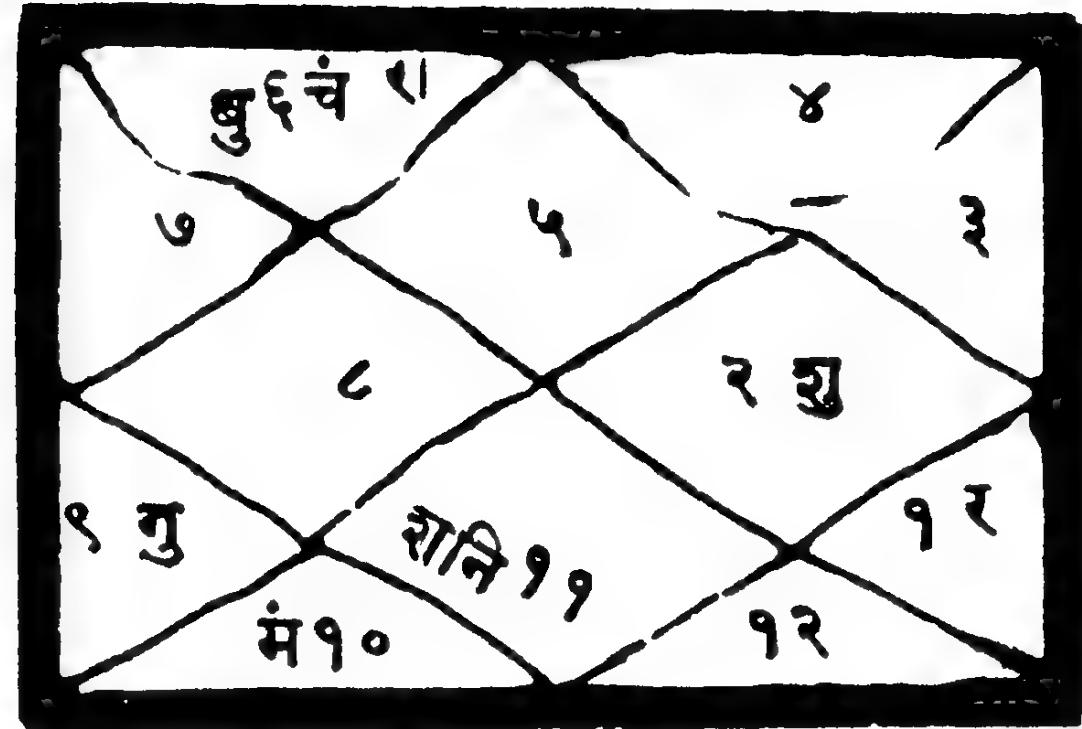 बु ६ चं रा
४
७
५
३
८
२ शु
९ गु
शनि ११
१ र
मं १०
१२